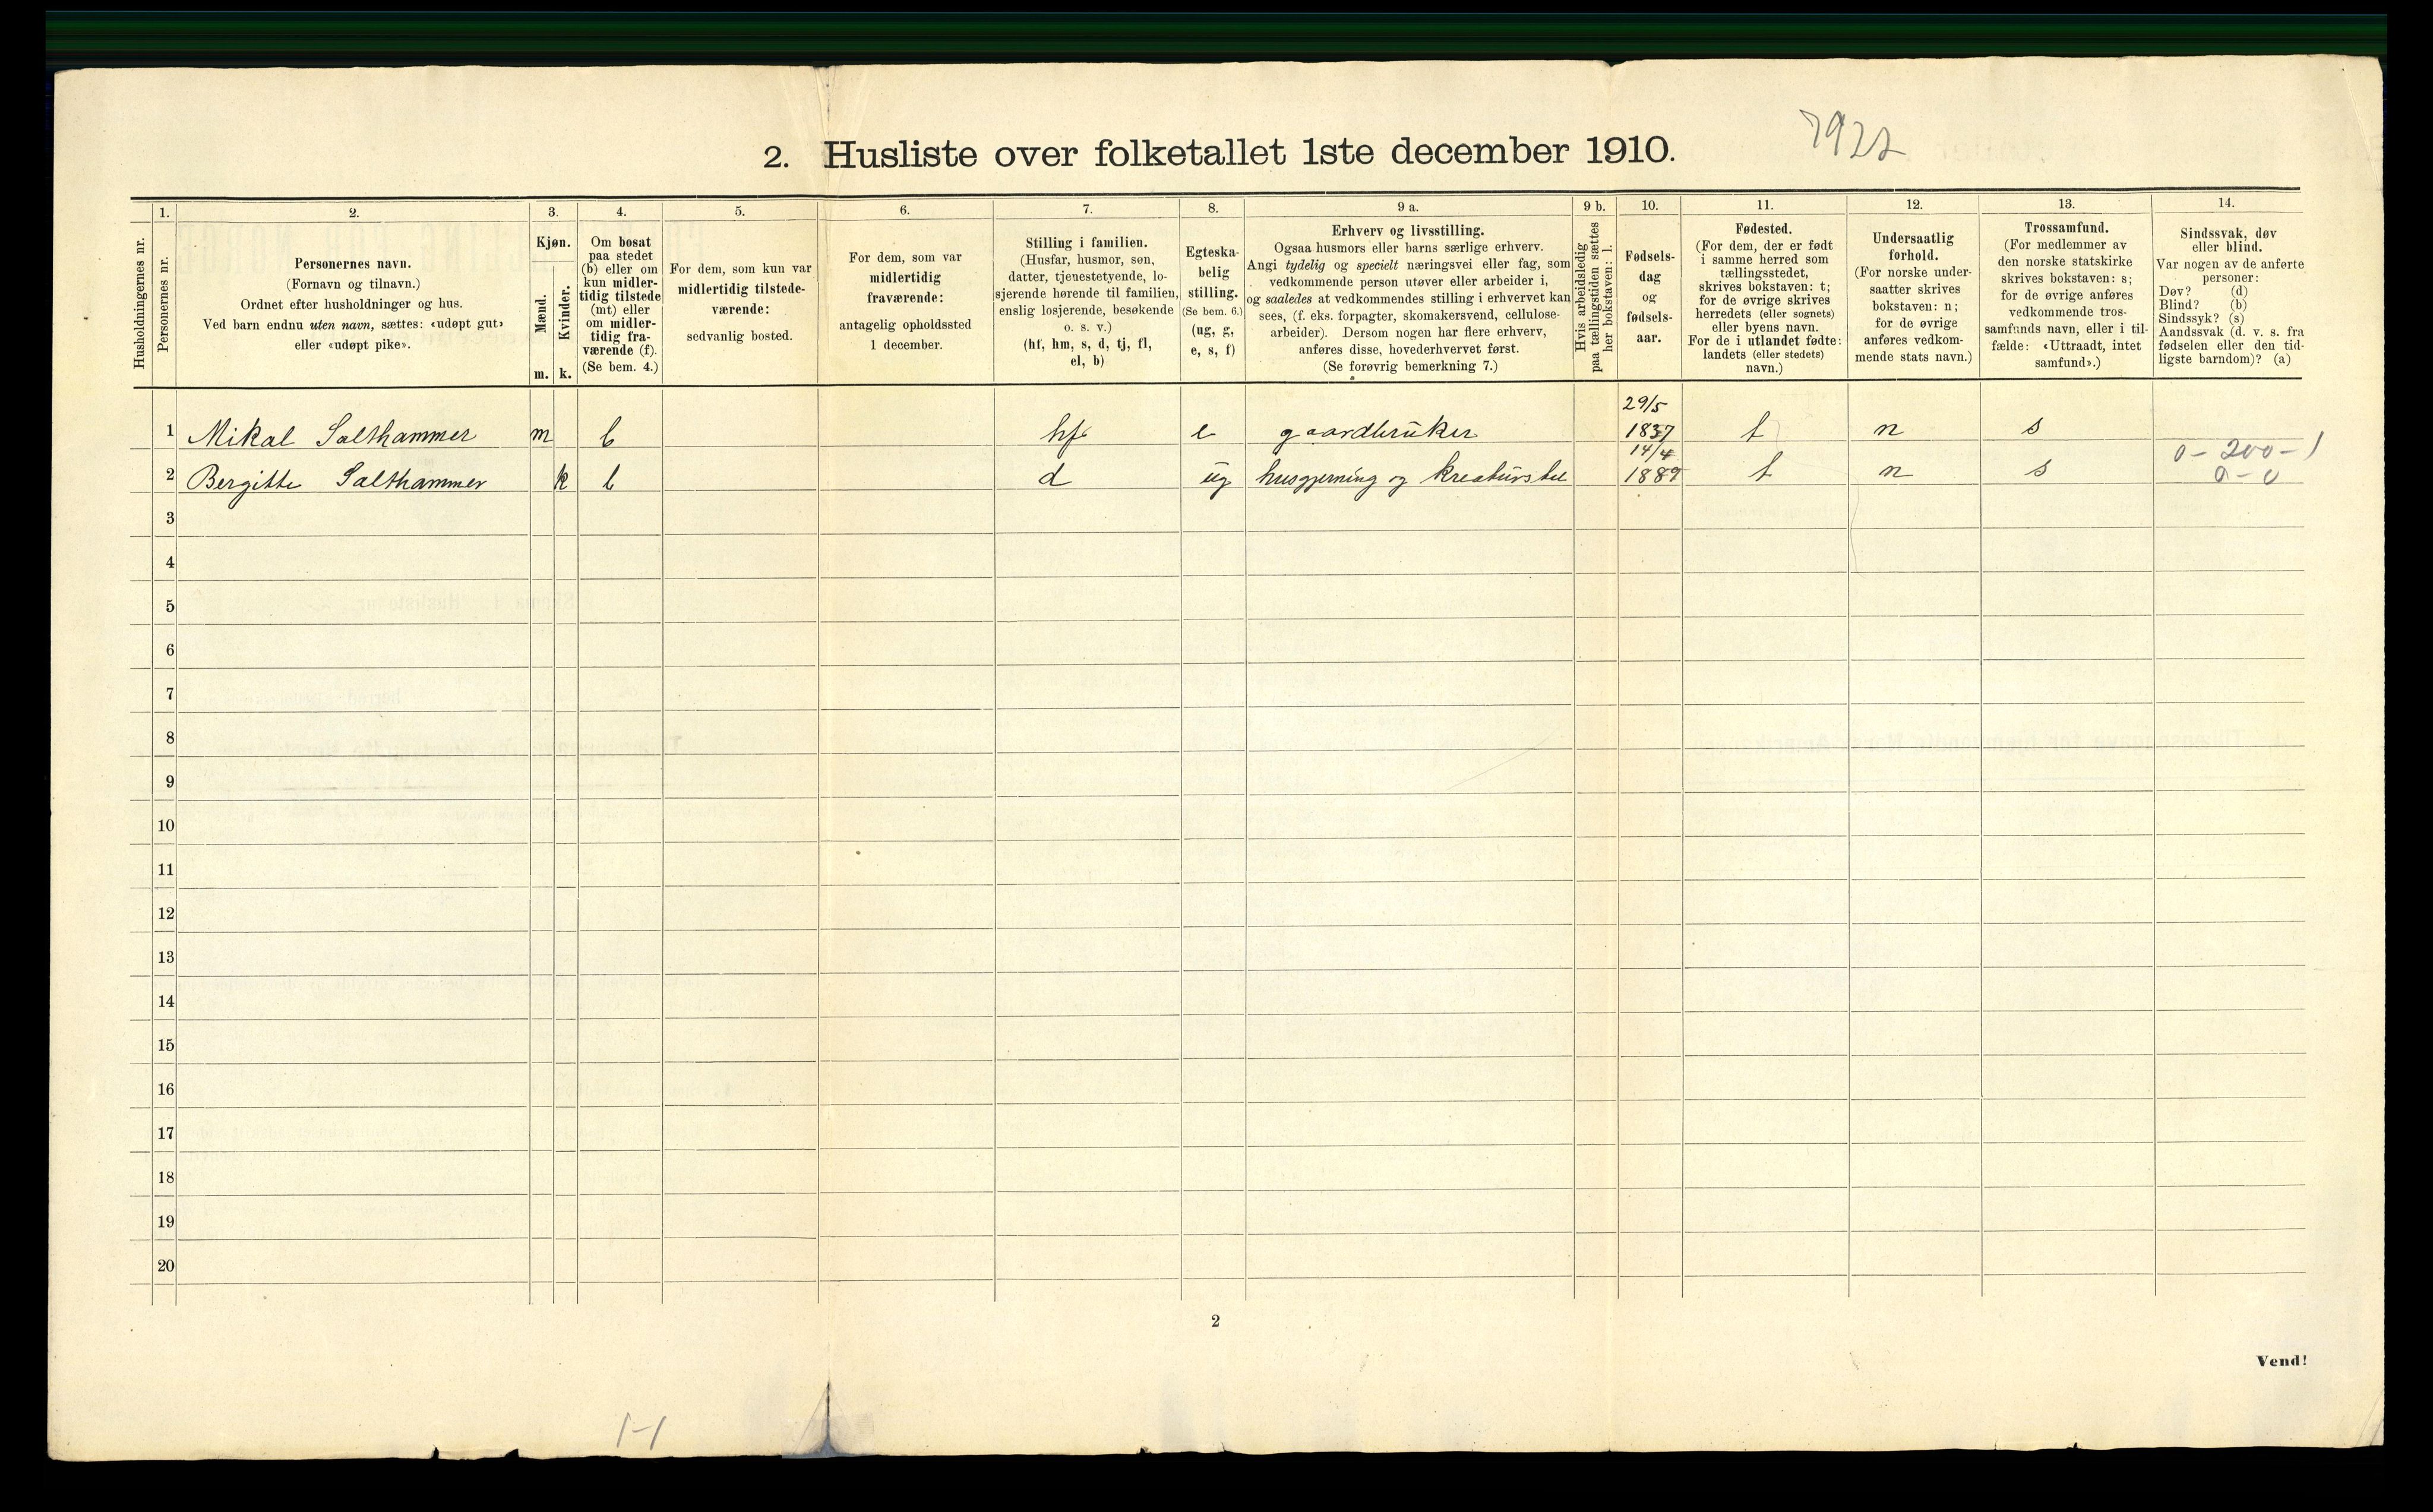 7922
2. Husliste over folketallet 1ste december 1910.
1. 2. 3. 4. 5. 6. 7. 8. 9 a. 9 b. 10. 11. 12. 13. 14.
Husholdningernes nr.
Personernes nr.
Personernes navn.
(Fornavn og tilnavn.)
Ordnet efter husholdninger og hus.
Ved barn endnu uten navn, sættes: «udøpt gut»
eller «udøpt pike».
Kjøn.
Mænd.
Kvinder.
m. k.
Om bosat
paa stedet
(b) eller om
kun midler-
tidig tilstede
(mt) eller
om midler-
tidig fra-
værende (f).
(Se bem. 4.)
For dem, som kun var
midlertidig tilstede-
værende:
sedvanlig bosted.
For dem, som var
midlertidig
fraværende:
antagelig opholdssted
1 december.
Stilling i familien.
(Husfar, husmor, søn,
datter, tjenestetyende, lo-
sjerende hørende til familien,
enslig losjerende, besøkende
o. s. v.)
(hf, hm, s, d, tj, fl,
el, b)
Egteska-
belig
stilling.
(Se bem. 6.)
(ug, g,
e, s, f)
Erhverv og livsstilling.
Ogsaa husmors eller barns særlige erhverv.
Angi tydelig og specielt næringsvei eller fag, som
vedkommende person utøver eller arbeider i,
og saaledes at vedkommendes stilling i erhvervet kan
sees, (f. eks. forpagter, skomakersvend, cellulose-
arbeider). Dersom nogen har flere erhverv,
anføres disse, hovederhvervet først.
(Se forøvrig bemerkning 7.)
Hvis arbeidsledig
paa tællingstiden sættes
her bokstaven: l.
Fødsels-
dag
og
fødsels-
aar.
Fødested.
(For dem, der er født
i samme herred som
tællingsstedet,
skrives bokstaven: t;
for de øvrige skrives
herredets (eller sognets)
eller byens navn.
For de i utlandet fødte:
landets (eller stedets)
navn.)
Undersaatlig
forhold.
(For norske under-
saatter skrives
bokstaven: n;
for de øvrige
anføres vedkom-
mende stats navn.)
Trossamfund.
(For medlemmer av
den norske statskirke
skrives bokstaven: s;
for de øvrige anføres
vedkommende tros-
samfunds navn, eller i til-
fælde: «Uttraadt, intet
samfund».)
Sindssvak, døv
eller blind.
Var nogen av de anførte
personer:
Døv? (d)
Blind? (b)
Sindssyk? (s)
Aandssvak (d. v. s. fra
fødselen eller den tid-
ligste barndom)? (a)
29/5
1 Mikal Salthammer m b hf e gaardbruker 1837 t n s
14/4 0-200-1
2 Bergitte Salthammer k b d ug husgjerning og kreaturstel 1889 t n s 0-0
3
4
5
6
7
8
9
10
11
12
13
14
15
16
17
18
19
20
2
Vend!
1-1